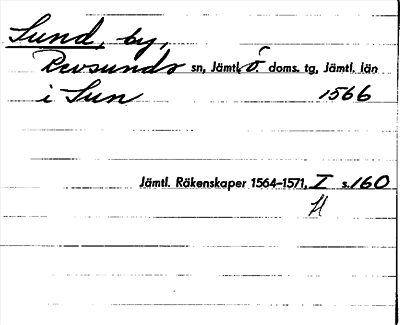 Sund, by,
Revsunds sn, Jämtl. ö. doms. tg, Jämtl. län
i Sun 1566
Jämtl. Räkenskaper 1564–1571, I s. 160
H